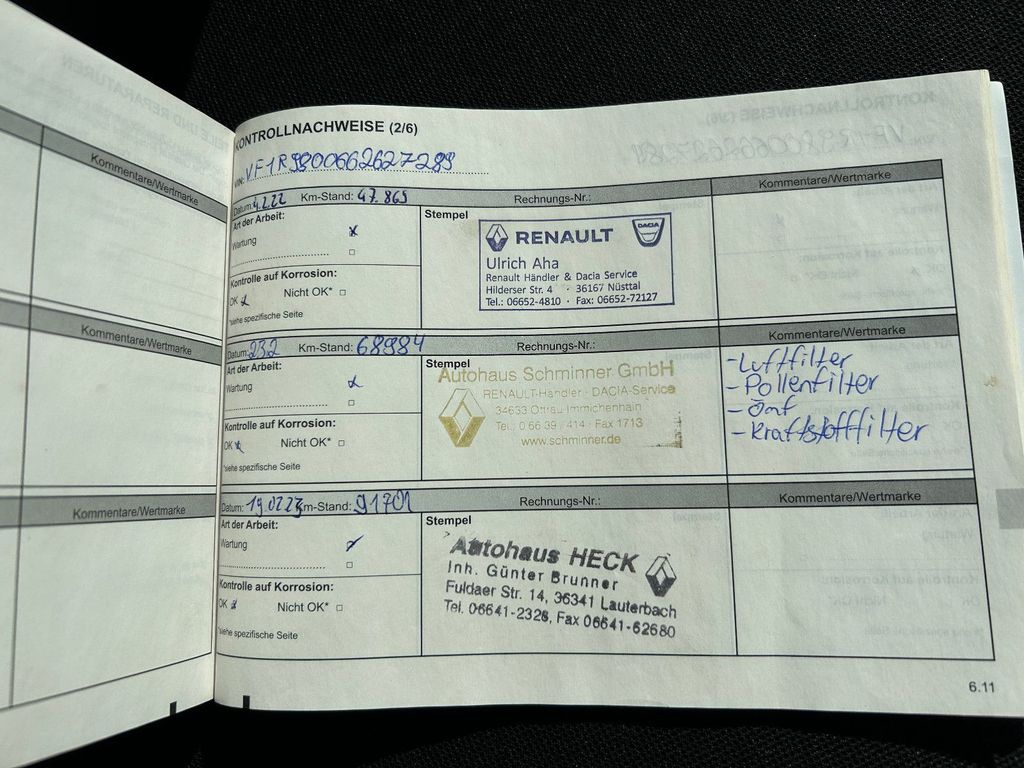 Kommentare/Wertmarke
Kommentare/Wertmarke
Kommentare/Wertmarke
KONTROLLNACHWEISE (2/6)
VIN:
Datum: 4.2.22 Km-Stand: 47.869 Rechnungs-Nr.: Kommentare/Wertmarke
Art der Arbeit:
Wartung x
Kontrolle auf Korrosion:
OK x Nicht OK* □
*siehe spezifische Seite
Stempel
RENAULT DACIA
Ulrich Aha
Renault Händler & Dacia Service
Hilderser Str. 4 · 36167 Nüsttal
Tel.: 06652-4810 · Fax: 06652-72127
Datum: Km-Stand: 68984 Rechnungs-Nr.: Kommentare/Wertmarke
Art der Arbeit:
Wartung x
Kontrolle auf Korrosion:
OK x Nicht OK* □
*siehe spezifische Seite
Stempel
Autohaus Schminner GmbH
RENAULT-Händler · DACIA-Service
34633 Ottrau-Immichenhain
Tel.: 0 66 39 / 414 · Fax 1713
www.schminner.de
-Luftfilter
-Pollenfilter
-Kraftstofffilter
Datum: 19.02.23 Km-Stand: 91701 Rechnungs-Nr.: Kommentare/Wertmarke
Art der Arbeit:
Wartung
Kontrolle auf Korrosion:
OK x Nicht OK* □
*siehe spezifische Seite
Stempel
Autohaus HECK
Inh. Günter Brunner
Fuldaer Str. 14, 36341 Lauterbach
Tel. 06641-2328, Fax 06641-62680
6.11